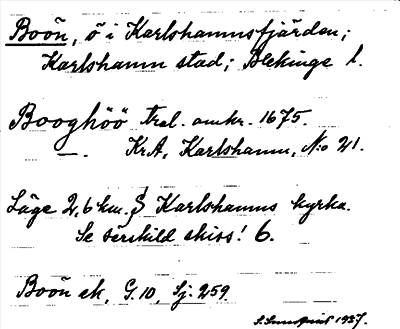 Boön, ö i Karlshamnsfjärden;
Karlshamn stad; Blekinge l.
Booghöö tral. omkr. 1675.
—. KrA, Karlshamn, N:o 21.
Läge 2,6 km. S Karlshamns kyrka.
Se särskild skiss! 6.
Boön ek, G.10, Sj. 259.
S. Sundqvist 1937.